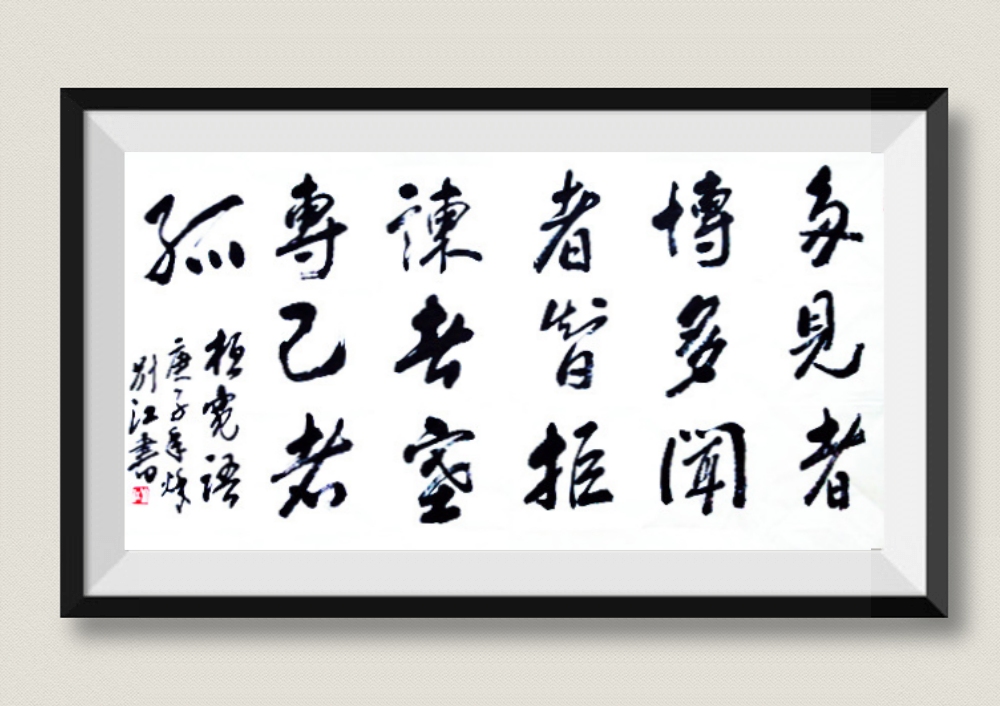 多見者
博多聞
者智拒
諫者塞
專己者
孤
桓寬語
庚子年秋
別江書